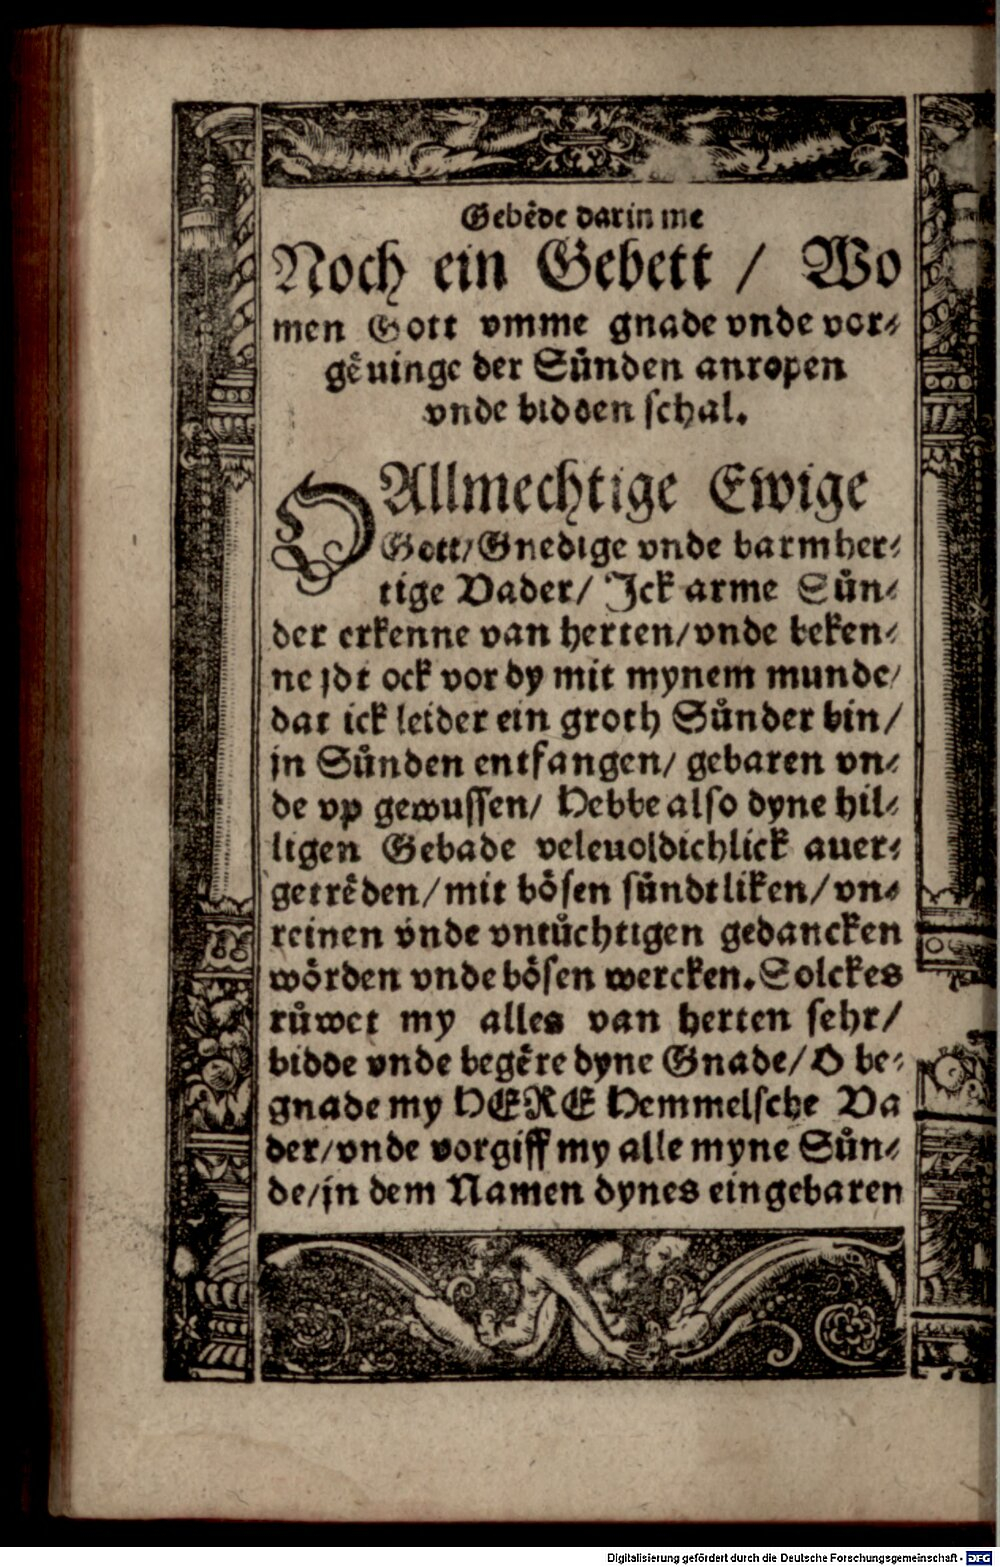 Gebêde darin me
Noch ein Gebett / Wo
men Gott vmme gnade vnde vor⸗
gêuinge der Sůnden anropen
vnde bidden schal.
O Allmechtige Ewige
Gott/Gnedige vnde barmher⸗
tige Vader/ Jck arme Sůn⸗
der erkenne van herten/vnde beken⸗
ne jdt ock vor dy mit mynem munde/
dat ick leider ein groth Sůnder bin/
jn Sůnden entfangen/ gebaren vn⸗
de vp gewussen/ Hebbe also dyne hil⸗
ligen Gebade veleuoldichlick auer⸗
getrêden/mit bôsen sůndtliken/vn⸗
reinen vnde vntůchtigen gedancken
wôrden vnde bôsen wercken. Solckes
růwet my alles van herten sehr/
bidde vnde begêre dyne Gnade/O be⸗
gnade my HERE Hemmelsche Va
der/vnde vorgiff my alle myne Sůn⸗
de/jn dem Namen dynes eingebaren
Digitalisierung gefördert durch die Deutsche Forschungsgemeinschaft - DFG